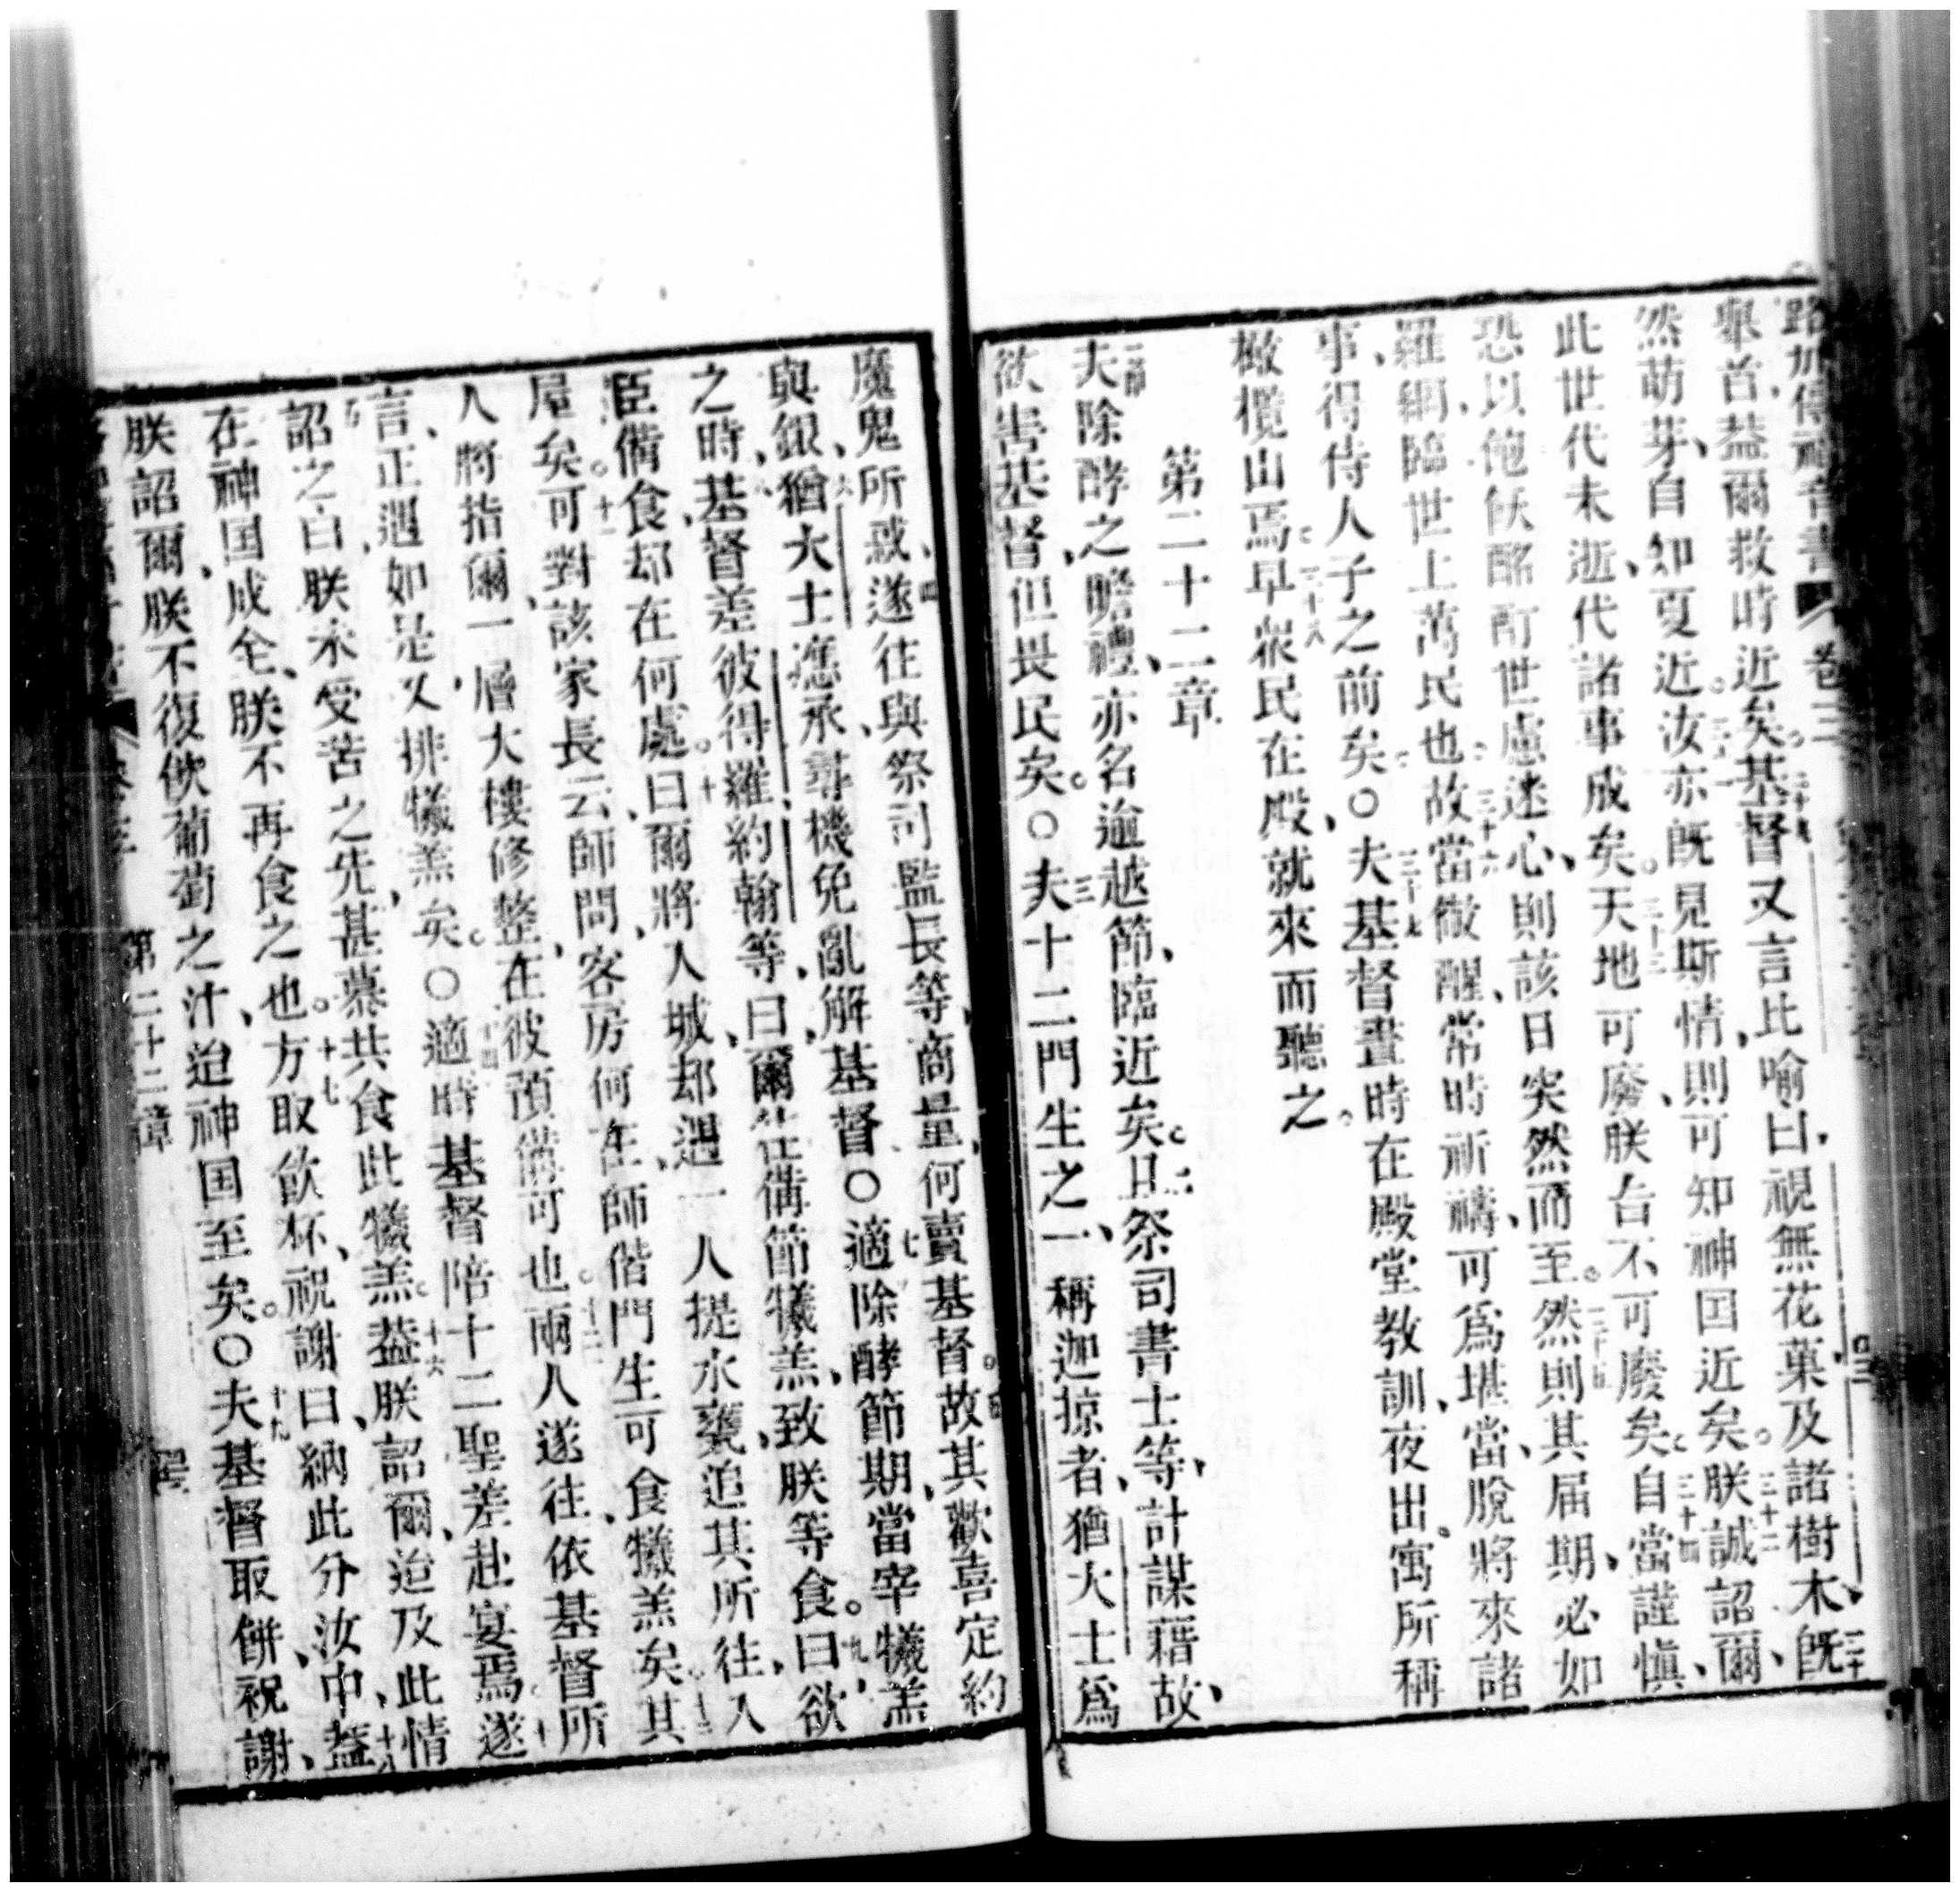 路加傳福音書 卷三
舉首葢爾救時近矣。二十九基督又言比喻曰、視無花菓及諸樹木、三十旣
然萌芽、自知夏近。三十一汝亦旣見斯情、則可知神国近矣。三十二朕誠詔爾、
此世代未逝、代諸事成矣。三十三天地可廢、朕言不可廢矣。三十四自當謹愼、
恐以飽飫酩酊世慮迷心、則該日突然而至。三十五然則其届期、必如
羅網、臨世上萬民也。三十六故當儆醒、常時祈禱、可爲堪當、脫將來諸
事、得侍人子之前矣。○三十七夫基督晝時在殿堂教訓、夜出寓所稱
橄欖山焉。三十八早衆民在殿、就來而聽之。
第二十二章
一節夫除酵之瞻禮、亦名逾越節、臨近矣。二且祭司書士等、計謀藉故、
欲害基督、但畏民矣。○三夫十二門生之一、稱迦掠者、猶大士爲
魔鬼所惑、四遂往與祭司監長等、商量何賣基督。故其歡喜定約
與銀、六猶大士應承、尋機免亂解基督。○七適除酵節期、當宰犧羔
之時、八基督差彼得羅、約翰等、曰、爾往備節犧羔、致朕等食。九曰、欲
臣備食、却在何處。十曰、爾將入城、却遇一人提水甕、追其所往、入
屋矣。十一可對該家長云、師問、客房何在、師偕門生可食犧羔矣。十二其
人將指爾、一層大樓修整、在彼預備可也。十三兩人遂往、依基督所
言、正遇如是、又排犧羔矣。○十四適時基督陪十二聖差赴宴焉。十五遂
詔之曰、朕未受苦之先、甚慕共食此犧羔。十六葢朕詔爾、迨及此情
在神国成全、朕不再食之也。十七方取飲杯、祝謝曰、納此分汝中、十八葢
朕詔爾、朕不復飲葡萄之汁、迨神国至矣。○十九夫基督取餅、祝謝、
第二十二章